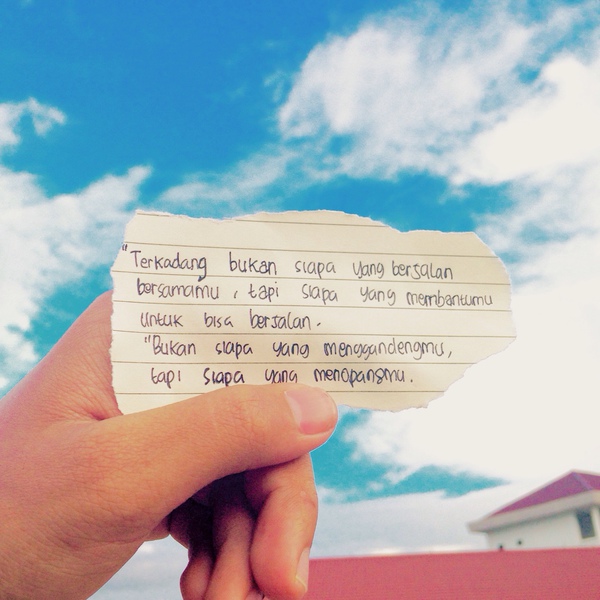 "Terkadang bukan siapa yang berjalan
bersamamu, tapi siapa yang membantumu
untuk bisa berjalan.
"Bukan siapa yang menggandengmu,
tapi siapa yang menopangmu.